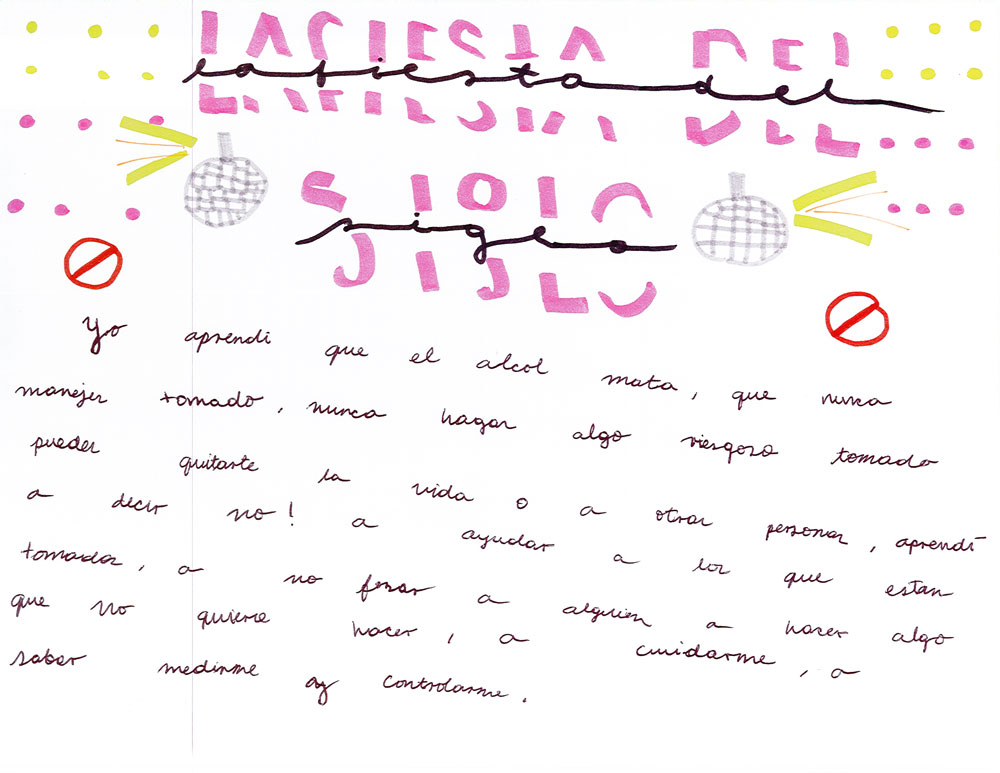 la fiesta del
siglo
Yo aprendi que el alcol mata, que nunca
manejes tomado, nunca hagas algo riesgoso tomado
puedes quitarte la vida o a otras personas, aprendí
a decir no! a ayudar a los que estan
tomados, a no forzar a alguien a hacer algo
que no quiere hacer, a cuidarme, a
saber medirme y controlarme.